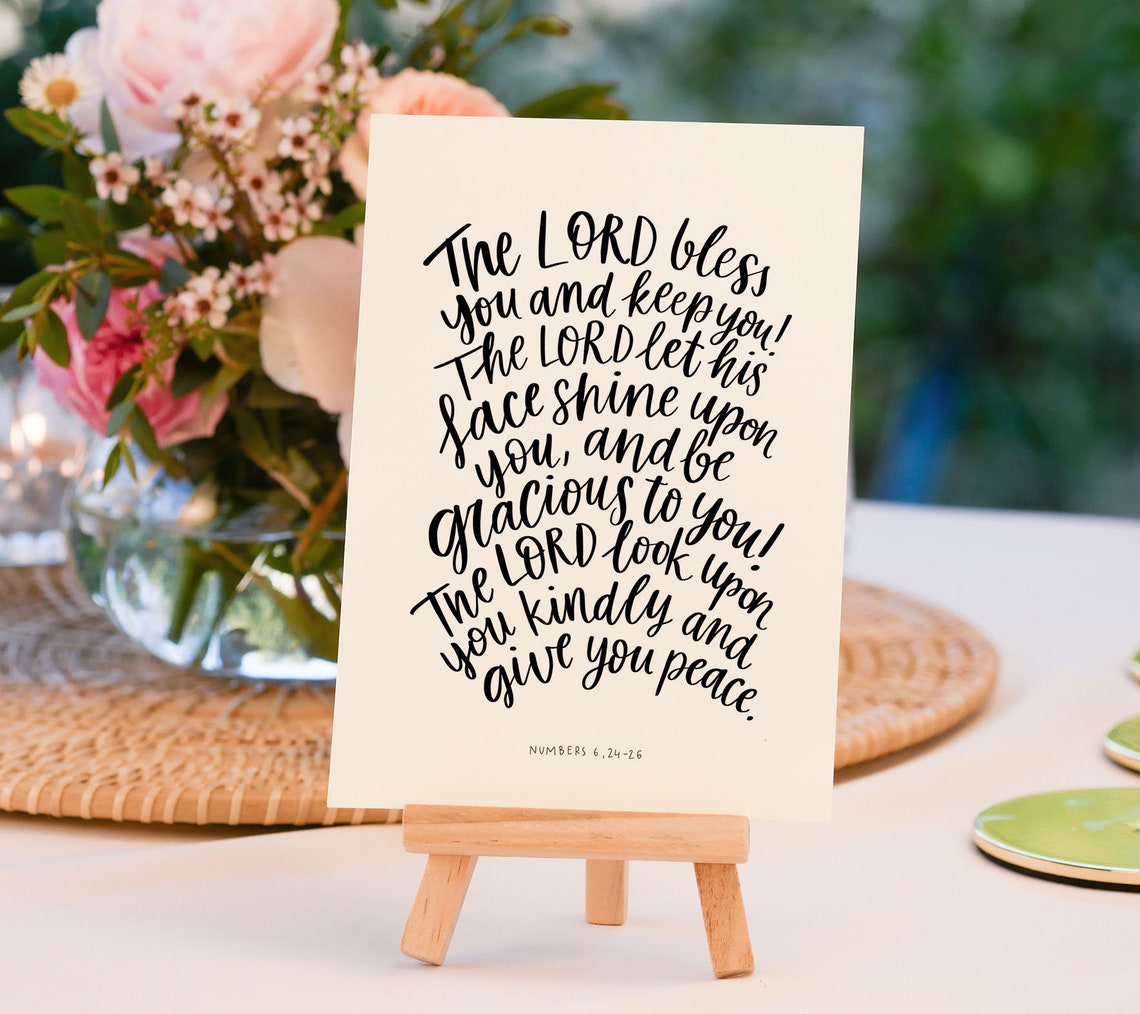 The LORD bless
you and keep you!
The LORD let his
face shine upon
you, and be
gracious to you!
The LORD look upon
you kindly and
give you peace.
NUMBERS 6,24-26